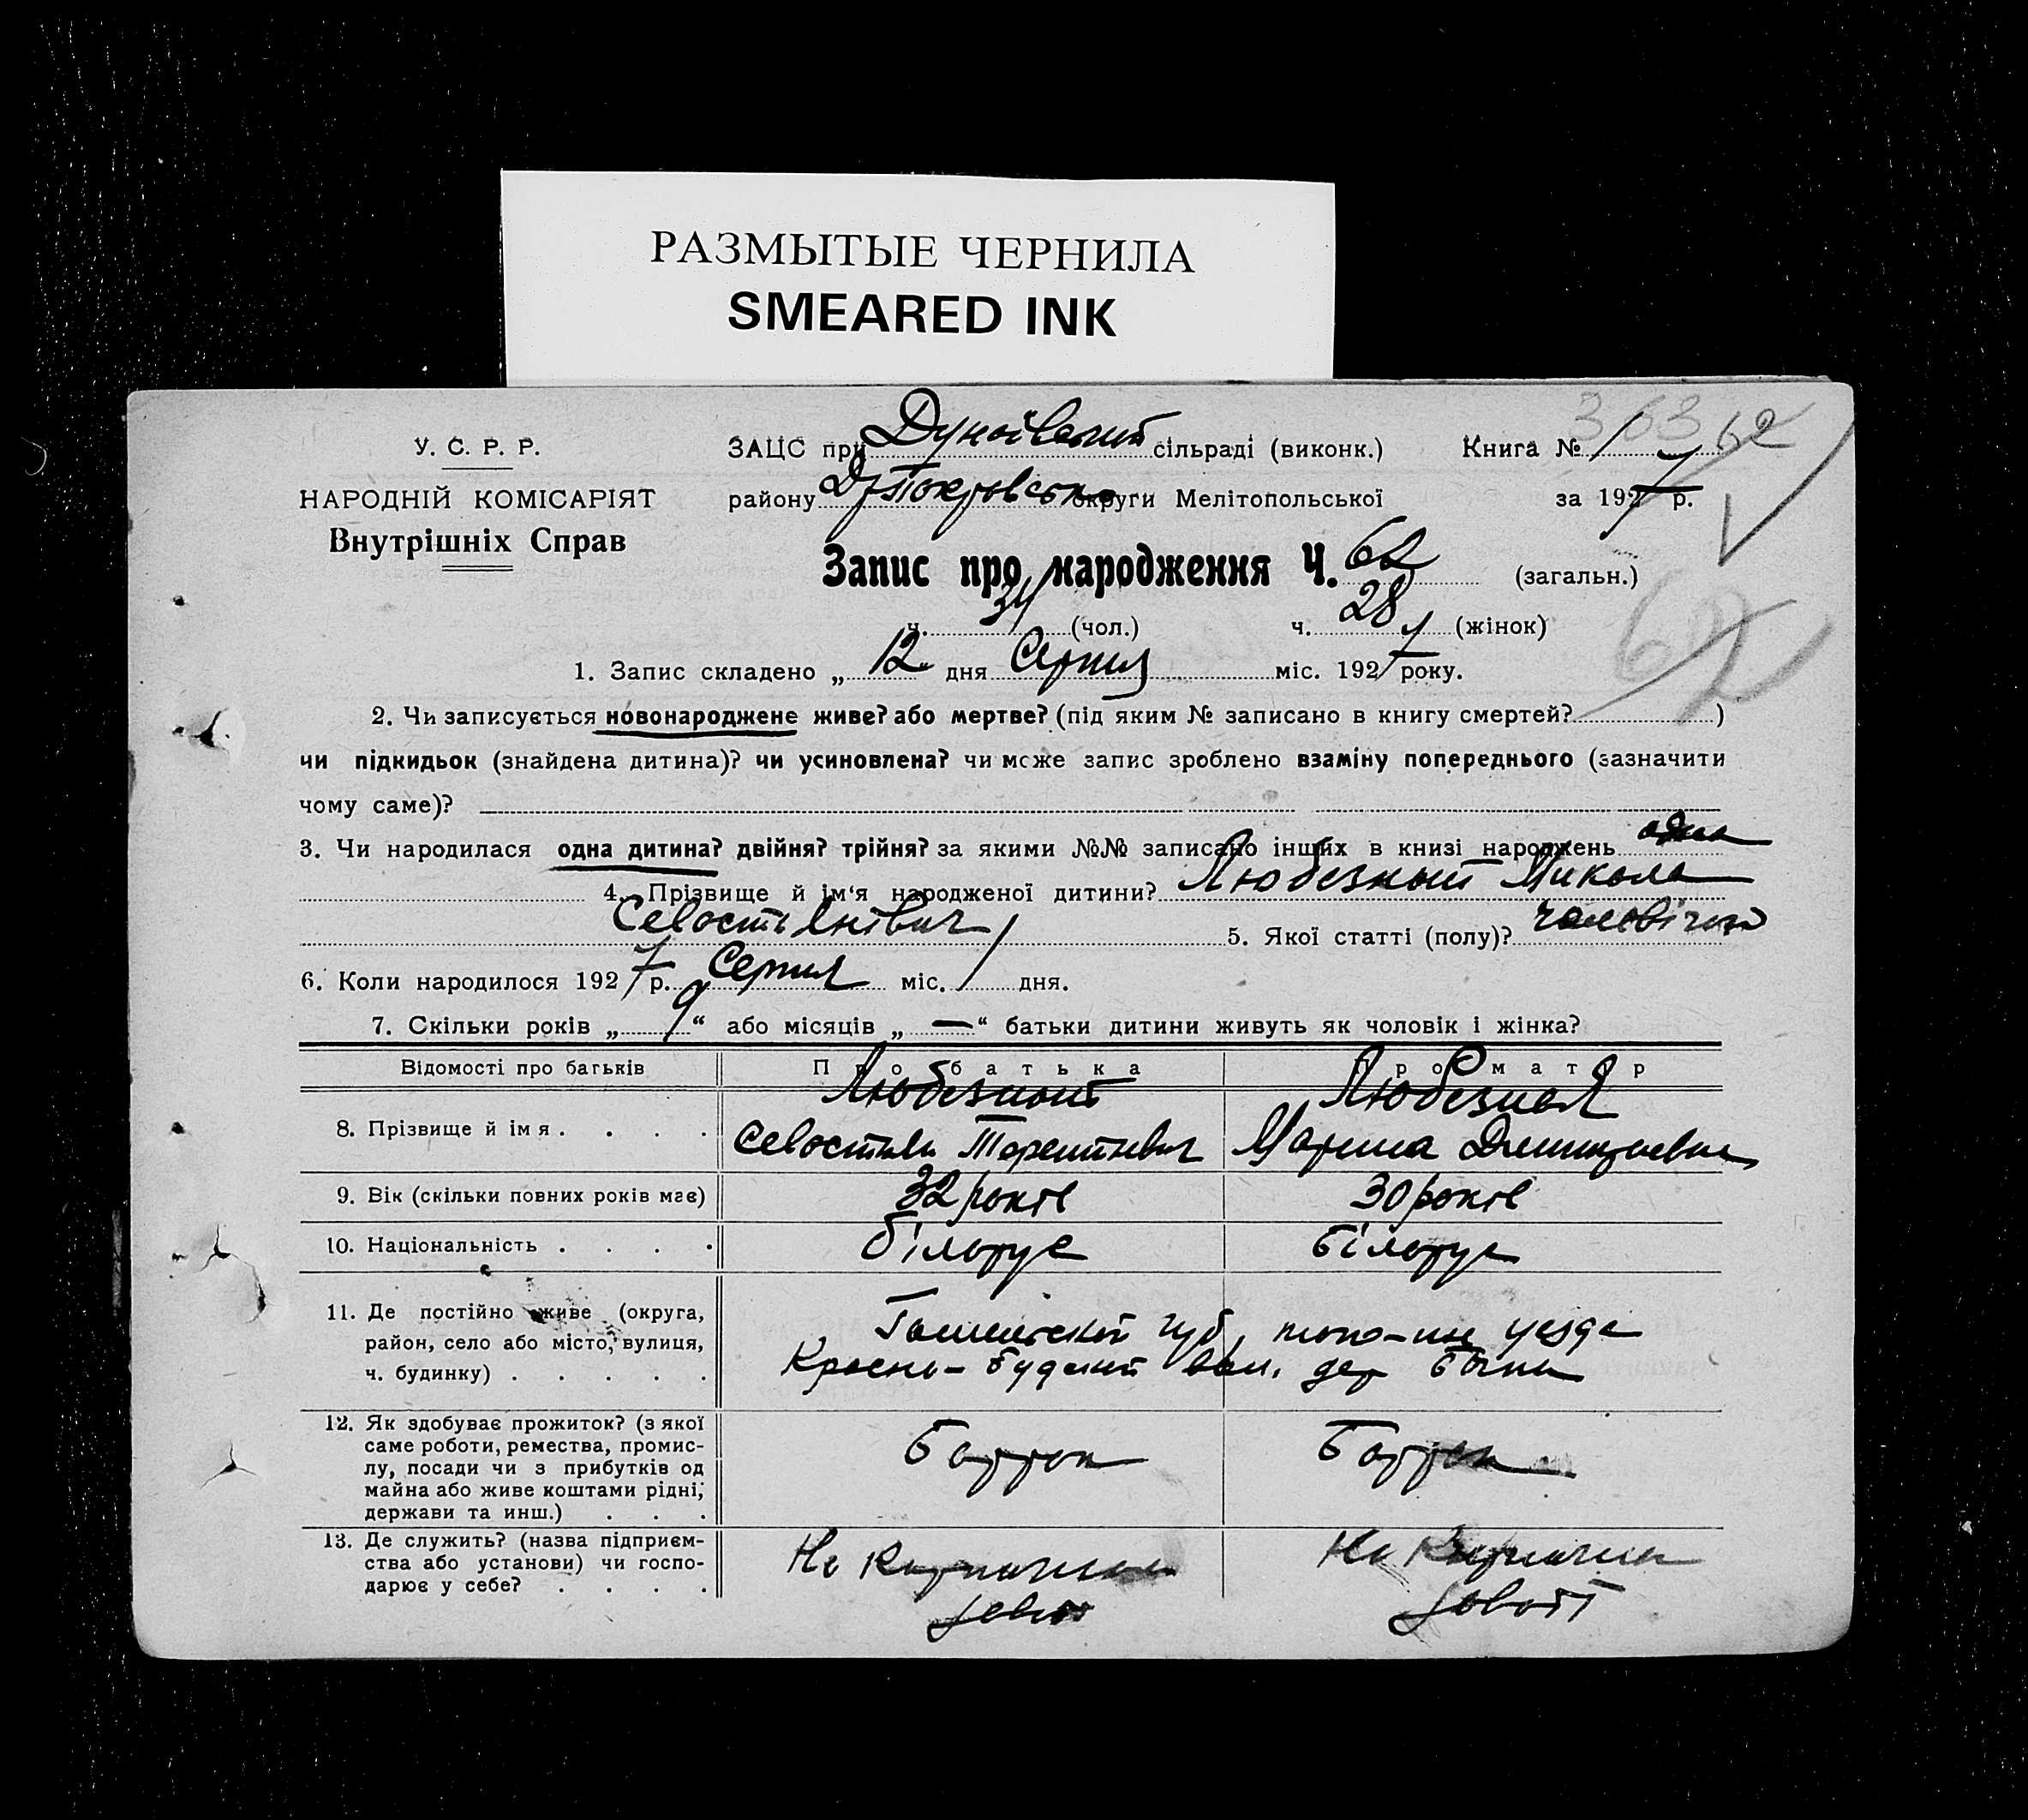 РАЗМЫТЫЕ ЧЕРНИЛА
SMEARED INK
363 62
У. С. Р. Р.
НАРОДНІЙ КОМІСАРІЯТ
Внутрішніх Справ
ЗАЦС при Дунаївський сільраді (виконк.) Книга № 1
району округи Мелітопольської за 1927 р.
Запис про народження Ч. 62 (загальн.)
ч. 34 (чол.) ч. 28 (жінок)
62
1. Запис складено „ 12 дня Серпня міс. 1927 року.
2. Чи записується новонароджене живе? або мертве? (під яким № записано в книгу смертей? )
чи підкидьок (знайдена дитина)? чи усиновлена? чи може запис зроблено взаміну попереднього (зазначити
чому саме)?
3. Чи народилася одна дитина? двійня? трійня? за якими №№ записано інших в книзі народжень одна
4. Прізвище й ім‘я народженої дитини? Любезный Микола
Севостьянівич 5. Якої статті (полу)? чоловічої
6. Коли народилося 1927 р. Серпня міс. 1 дня.
7. Скільки років „ 9 “ або місяців „ — “ батьки дитини живуть як чоловік і жінка?
Відомості про батьків Про батька Про матір
8. Прізвище й імя . . . . Любезный Любезная
Севостьян Терентиевич Марина Дмитриевна
9. Вік (скільки повних років має) 32 років 30 років
10. Національність . . . . білорус білорус
11. Де постійно живе (округа, район, село або місто, вулиця, ч. будинку) . . . . . губ, уезда
Красно-Будский вол. дер
12. Як здобуває прожиток? (з якої саме роботи, ремества, промислу, посади чи з прибутків од майна або живе коштами рідні, держави та инш.) . . . Батрак Батрак
13. Де служить? (назва підприємства або установи) чи господарює у себе? . . . . На На